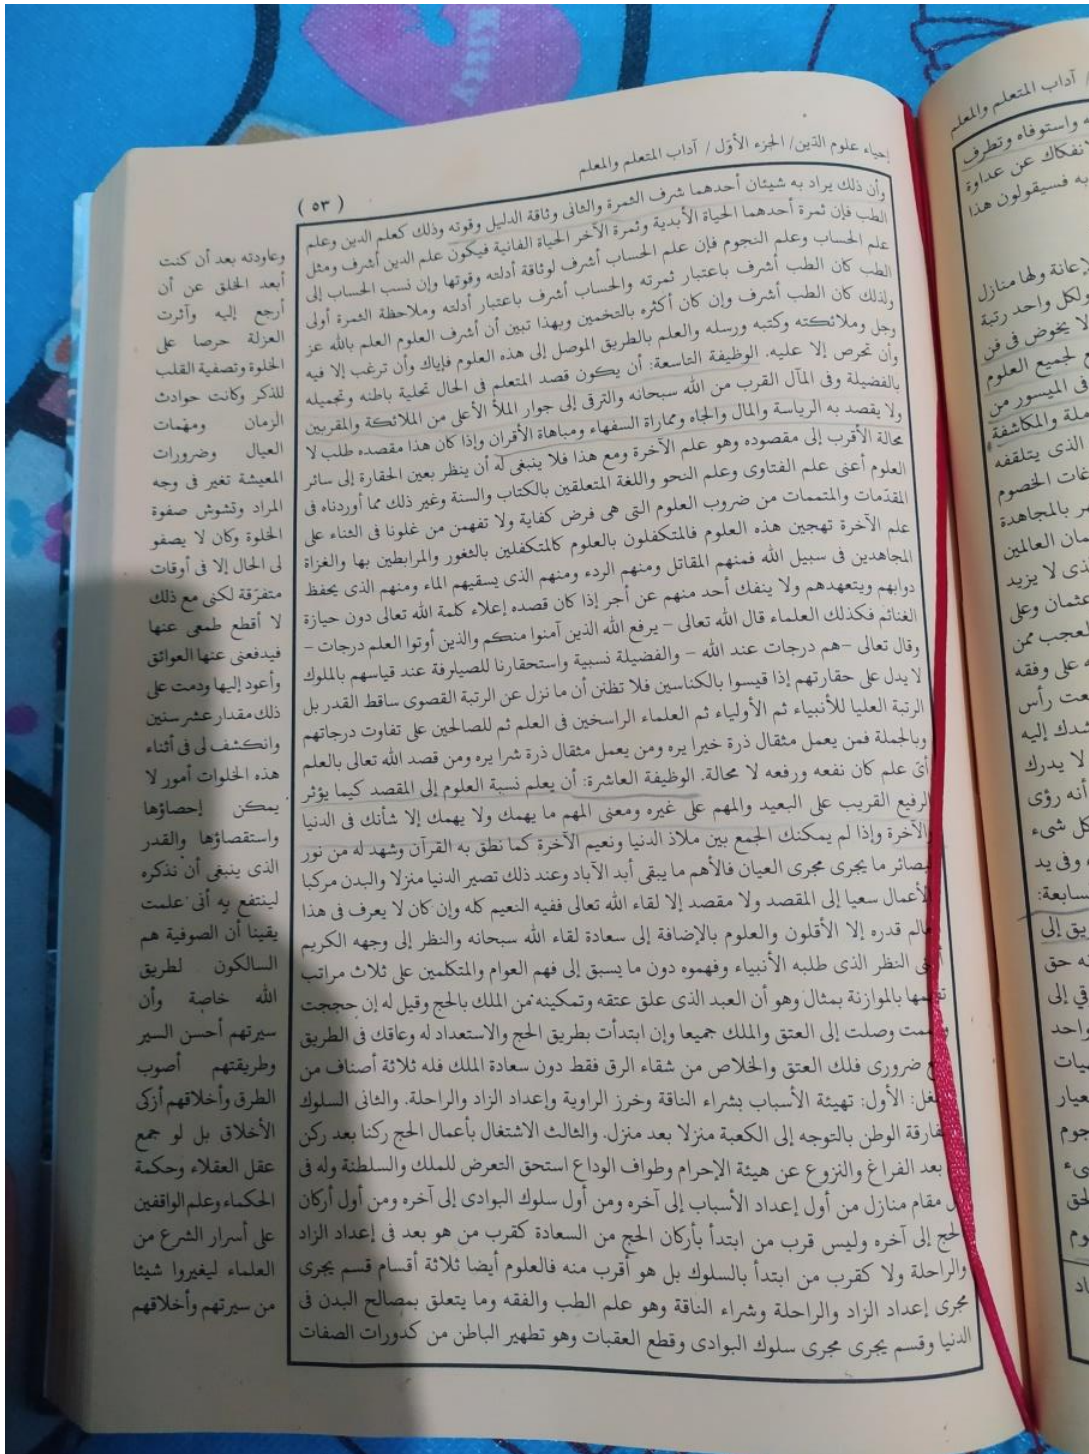 إحياء علوم الدين/ الجزء الأوّل / آداب المتعلم والمعلم
( ٥٣ )
وأن ذلك يراد به شيئان أحدهما شرف الثمرة والثانى وثاقة الدليل وقوته وذلك كعلم الدين وعلم
الطب فإن ثمرة أحدهما الحياة الأبدية وثمرة الآخر الحياة الفانية فيكون علم الدين أشرف ومثل
علم الحساب وعلم النجوم فإن علم الحساب أشرف لوثاقة أدلته وقوتها وإن نسب الحساب إلى
الطب كان الطب أشرف باعتبار ثمرته والحساب أشرف باعتبار أدلته وملاحظة الثمرة أولى
ولذلك كان الطب أشرف وإن كان أكثره بالتخمين وبهذا تبين أن أشرف العلوم العلم بالله عز
وجل وملائكته وكتبه ورسله والعلم بالطريق الموصل إلى هذه العلوم فإياك وأن ترغب إلا فيه
وأن تحرص إلا عليه. الوظيفة التاسعة: أن يكون قصد المتعلم فى الحال تحلية باطنه وتجميله
بالفضيلة وفى المآل القرب من الله سبحانه والترقى إلى جوار الملأ الأعلى من الملائكة والمقربين
ولا يقصد به الرياسة والمال والجاه ومماراة السفهاء ومباهاة الأقران وإذا كان هذا مقصده طلب لا
محالة الأقرب إلى مقصوده وهو علم الآخرة ومع هذا فلا ينبغى له أن ينظر بعين الحقارة إلى سائر
العلوم أعنى علم الفتاوى وعلم النحو واللغة المتعلقين بالكتاب والسنة وغير ذلك مما أوردناه فى
المقدّمات والمتممات من ضروب العلوم التى هى فرض كفاية ولا تفهمن من غلونا فى الثناء على
علم الآخرة تهجين هذه العلوم فالمتكفلون بالعلوم كالمتكفلين بالثغور والمرابطين بها والغزاة
المجاهدين فى سبيل الله فمنهم المقاتل ومنهم الردء ومنهم الذى يسقيهم الماء ومنهم الذى يحفظ
دوابهم ويتعهدهم ولا ينفك أحد منهم عن أجر إذا كان قصده إعلاء كلمة الله تعالى دون حيازة
الغنائم فكذلك العلماء قال الله تعالى – يرفع الله الذين آمنوا منكم والذين أوتوا العلم درجات –
وقال تعالى –هم درجات عند الله – والفضيلة نسبية واستحقارنا للصيارفة عند قياسهم بالملوك
لا يدل على حقارتهم إذا قيسوا بالكناسين فلا تظنن أن ما نزل عن الرتبة القصوى ساقط القدر بل
الرتبة العليا للأنبياء ثم الأولياء ثم العلماء الراسخين فى العلم ثم للصالحين على تفاوت درجاتهم
وبالجملة فمن يعمل مثقال ذرة خيرا يره ومن يعمل مثقال ذرة شرا يره ومن قصد الله تعالى بالعلم
أىّ علم كان نفعه ورفعه لا محالة. الوظيفة العاشرة: أن يعلم نسبة العلوم إلى المقصد كيما يؤثر
الرفيع القريب على البعيد والمهم على غيره ومعنى المهم ما يهمك ولا يهمك إلا شأنك فى الدنيا
والآخرة وإذا لم يمكنك الجمع بين ملاذ الدنيا ونعيم الآخرة كما نطق به القرآن وشهد له من نور
بصائر ما يجرى مجرى العيان فالأهم ما يبقى أبد الآباد وعند ذلك تصير الدنيا منزلا والبدن مركبا
الأعمال سعيا إلى المقصد ولا مقصد إلا لقاء الله تعالى ففيه النعيم كله وإن كان لا يعرف فى هذا
قدره إلا الأقلون والعلوم بالإضافة إلى سعادة لقاء الله سبحانه والنظر إلى وجهه الكريم
النظر الذى طلبه الأنبياء وفهموه دون ما يسبق إلى فهم العوام والمتكلمين على ثلاث مراتب
بالموازنة بمثال وهو أن العبد الذى علق عتقه وتمكينه من الملك بالحج وقيل له إن حججت
وصلت إلى العتق والملك جميعا وإن ابتدأت بطريق الحج والاستعداد له وعاقك فى الطريق
ضرورى فلك العتق والخلاص من شقاء الرق فقط دون سعادة الملك فله ثلاثة أصناف من
الأول: تهيئة الأسباب بشراء الناقة وخرز الراوية وإعداد الزاد والراحلة. والثانى السلوك
الوطن بالتوجه إلى الكعبة منزلا بعد منزل. والثالث الاشتغال بأعمال الحج ركنا بعد ركن
بعد الفراغ والنزوع عن هيئة الإحرام وطواف الوداع استحق التعرض للملك والسلطنة وله فى
مقام منازل من أول إعداد الأسباب إلى آخره ومن أول سلوك البوادى إلى آخره ومن أول أركان
الحج إلى آخره وليس قرب من ابتدأ بأركان الحج من السعادة كقرب من هو بعد فى إعداد الزاد
والراحلة ولا كقرب من ابتدأ بالسلوك بل هو أقرب منه فالعلوم أيضا ثلاثة أقسام قسم يجرى
مجرى إعداد الزاد والراحلة وشراء الناقة وهو علم الطب والفقه وما يتعلق بمصالح البدن فى
الدنيا وقسم يجرى مجرى سلوك البوادى وقطع العقبات وهو تطهير الباطن من كدورات الصفات
وعاودته بعد أن كنت
أبعد الخلق عن أن
أرجع إليه وآثرت
العزلة حرصا على
الخلوة وتصفية القلب
للذكر وكانت حوادث
الزمان ومهمات
العيال وضرورات
المعيشة تغير فى وجه
المراد وتشوش صفوة
الخلوة وكان لا يصفو
لى الحال إلا فى أوقات
متفرّقة لكنى مع ذلك
لا أقطع طمعى عنها
فيدفعنى عنها العوائق
وأعود إليها ودمت على
ذلك مقدار عشر سنين
وانكشف لى فى أثناء
هذه الخلوات أمور لا
يمكن إحصاؤها
واستقصاؤها والقدر
الذى ينبغى أن نذكره
لينتفع به أنى علمت
يقينا أن الصوفية هم
السالكون لطريق
الله خاصة وأن
سيرتهم أحسن السير
وطريقتهم أصوب
الطرق وأخلاقهم أزكى
الأخلاق بل لو جمع
عقل العقلاء وحكمة
الحكماء وعلم الواقفين
على أسرار الشرع من
العلماء ليغيروا شيئا
من سيرتهم وأخلاقهم